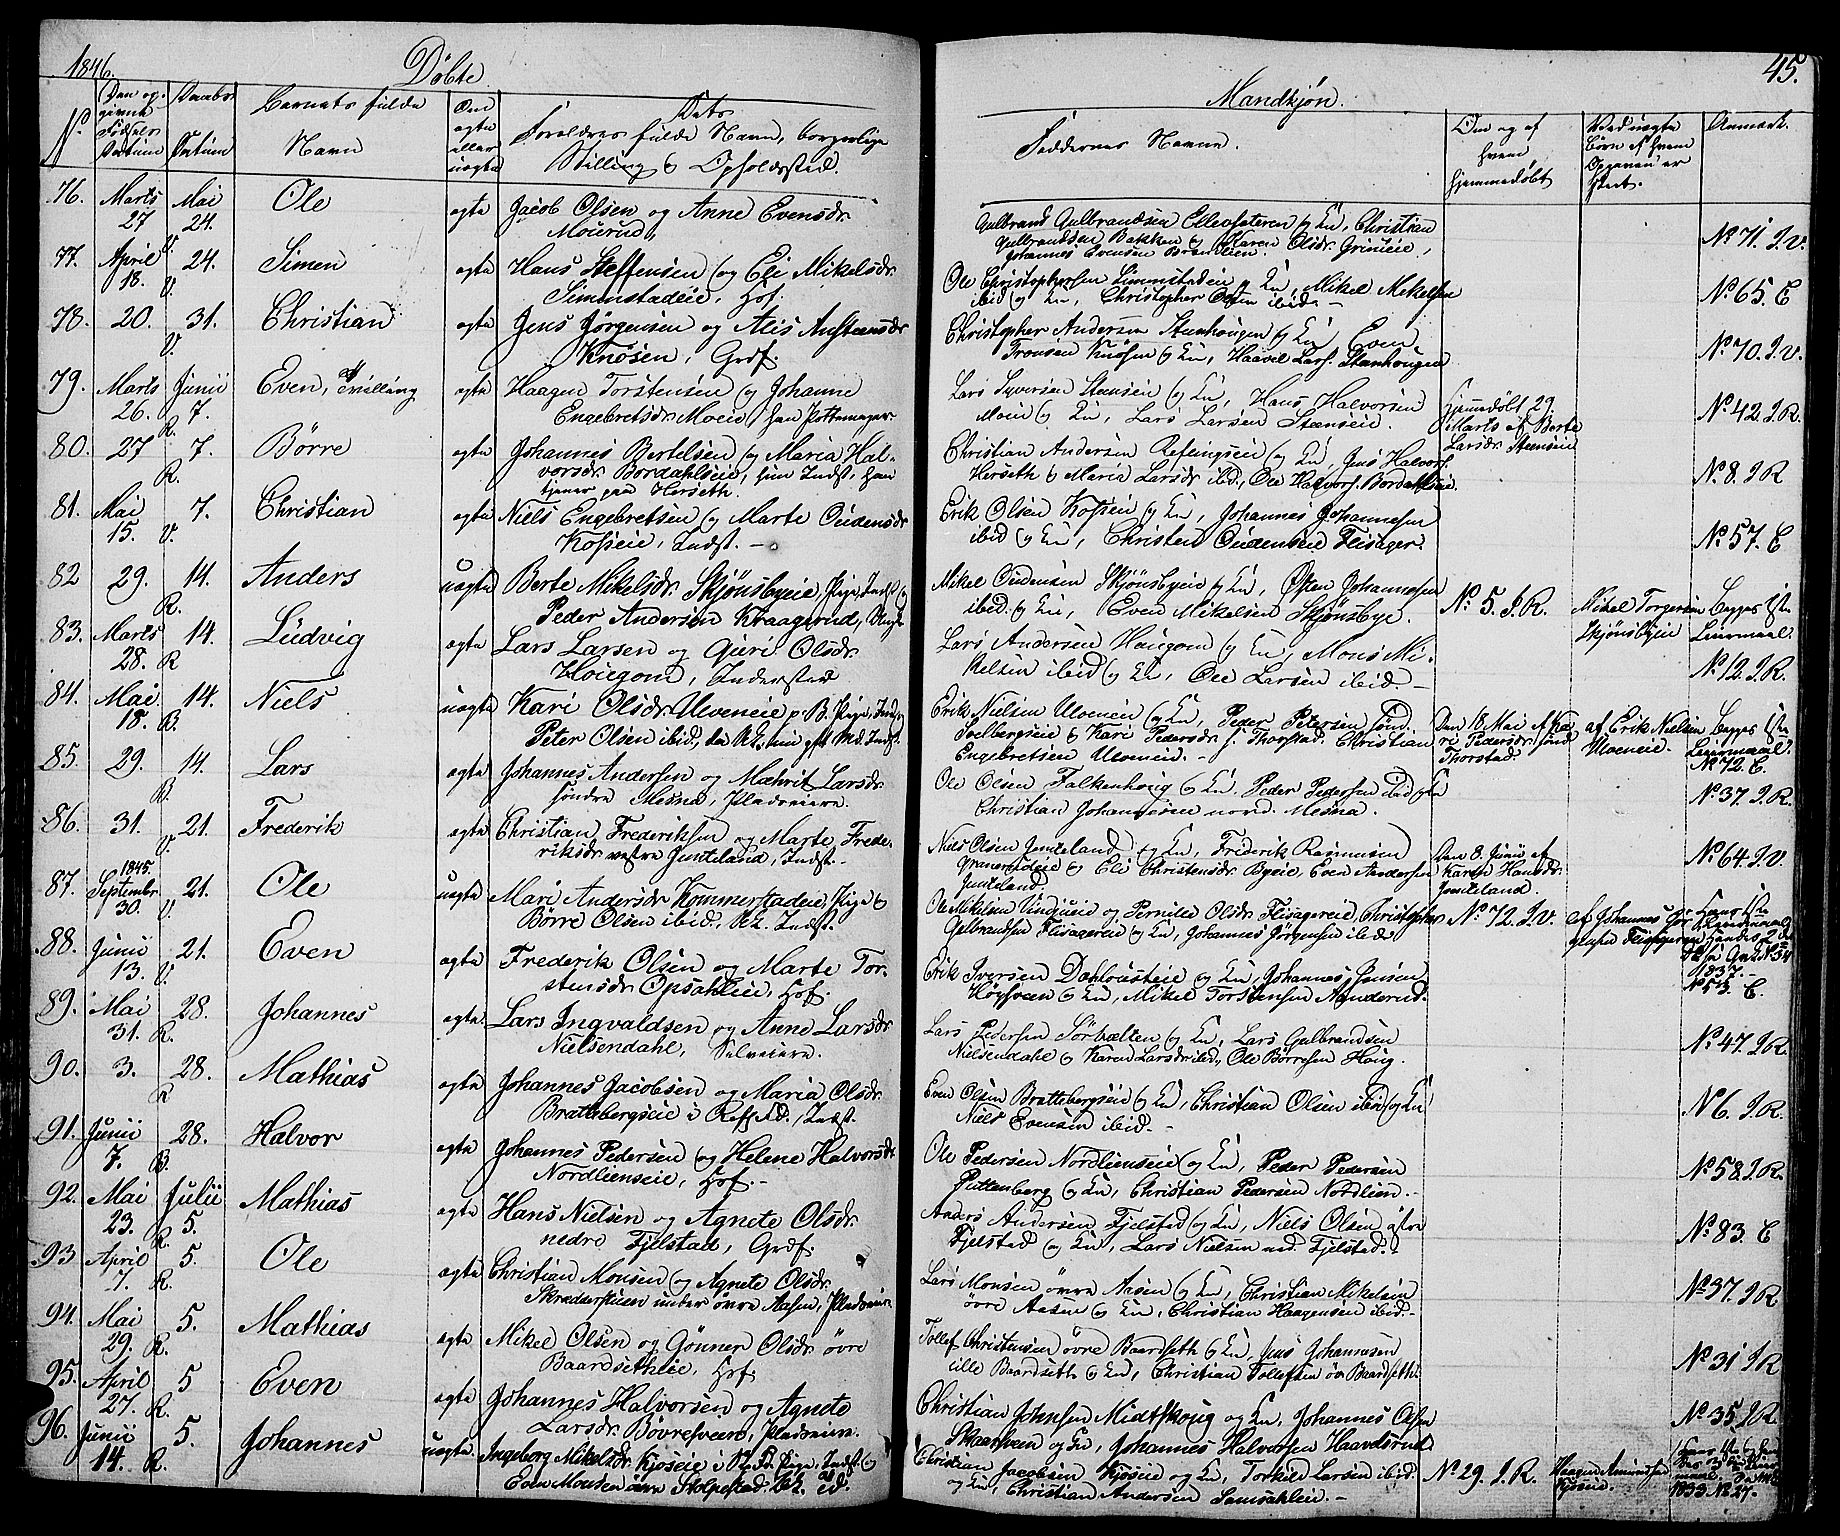 1846.
Döbte
Mandkjøn.
45.
No.
Den opgivne Fødsels Datum
Daabs Datum
Barnets fulde Navn
Om ægte eller uægte
Dets Forældres fulde Navn, borgerlige Stilling & Opholdssted.
Faddernes Navne.
Om og af hvem hjemmedøbt
Anmærk.
76. Marts 27 Mai 24. Ole ægte Jacob Olsen og Anne Evensdr.
Moierud,
Gulbrand Gulbrandsen og Kn, Christian
Gulbrandsen Bakken og Karen Olsdr.
Johannes Evensen
No 71. J. V.
77. April 18. V. 24. Simen ægte Hans Steffensen og Eli Mikelsdr.
Simenstadeie, Hof.
Ole Christophersen Simenstadeie og Kn, Mikel Mikelsen
ibid og Kn, Christopher Olsen ibid. –
No 65. E
78. 20. V. 31. Christian ægte Jens Jörgensen og Alis
Knösen, Grdf.
Christopher Andersen Stenhougen og Kn Even
Tronsen Knösen og Kn, Haavel Lars. Stenhougen
No 70. J. V.
79. Marts 26. Junii 7. R. Even, Tvilling ægte Haagen Torstensen og Johanne
Engebretsdr. Moeie, han Pottemager
Lars Syversen Steenseie og Kn, Hans Halvorsen
Moeie og Kn, Lars Larsen Steenseie.
Hjemmedöbt 29
Marts af Berte
Larsdr. Steenseie
No 42. J. R.
80. 27 R. 7. Börre ægte Johannes Bertelsen og Maria Hal-
vorsdr. Bordahlseie, hun Indst, han
tjener paa Herseth.
Christian Andersen og Kn, Jens Halvors.
Herseth & Maria Larsdr. ibid, Ole Halvors. Bordahlseie.
No 8. J R
81. Mai 15. V. 7. Christian ægte Niels Engebretsen og Marte Oudensdr.
Kosseie, Indst. –
Erik Olsen Kosseie og Kn, Johannes Johannesen
ibid og Kn, Christen Oudensen Flisager.
No 57. E
82 29. R. 14. Anders uægte Berte Mikelsdr. Skjönsbyeie, Pige, Indst &
Peder Andersen Kraagerud,
Mikel Oudensen Skjönsbyeie og Kn, Johannesen
ibid. og Kn, Even Mikelsen Skjönsbye.
No. 5. J. R.
Mikel Torgersen
Skjönsbyeie
Begges 1ste
Leiermaal.
83. Marts 28. R 14. Ludvig ægte Lars Larsen og Guri Olsdr.
Inderster.
Lars Andersen og Kn, Mons Mi-
kelsen ibid og Kn, Ole Larsen ibid. –
No 12. J. R.
84. Mai 18. B. 14. Niels uægte Kari Olsdr. Ulveneie p. B. Pige, Indst &
Peter Olsen ibid,
Erik Nielsen Ulveneie og Kn, Peder Petersen sönd.
Soelbergseie & Kari Pedersdr. s. Thorstad. Christian
Engebretsen Ulveneie. –
Den 18. Mai af Ka-
ri Pedersdr. sönd
Thorstad.
af Erik Nielsen
Ulveneie.
Begges 1ste
Leiermaal.
No 72. E.
85 29. B. 14. Lars ægte Johannes Andersen og Mathrit Larsdr.
söndre Mesna, Pladseiere.
Ole Olsen Falkenhoug & Kn. Peder Pedersen ibid og Kn
Christian Johannesen nord. Mesna.
No 37. J. R.
86. 31. V. 21. Frederik ægte Christian Frederiksen og Marte Frede-
riksdr. vestre Jemteland, Indst. –
Niels Olsen Jemteland og Kn, Frederik Rasmussen
& Eli Christensdr. Byeie, Even Andersen
Jemteland
Den 8. Junii af
Karen Hansdr.
Jemteland.
No 64. J. V.
87. 1845. Septembr. 30. V. 21. Ole uægte Mari Andersdr. Kommerstadeie, Pige &
Börre Olsen ibid., Indst.
Ole Mikelsen og Pernille Olsdr. Flisagereie, Christopher
Gulbrandsen Flisagereie og Kn, Johannes Jörgensen ibid
No 72. J. V.
af Johannes Jör-
gensen Flisagereie
1837.
No 53. E.
88. Junii 13. V. 21. Even ægte Frederik Olsen og Marte Tor-
stensdr. Opsahleie, Hof.
Erik Iversen og Kn, Johannes Jensen
Höysveen & Kn, Mikel Torstensen
89. Mai 31. R. 28. Johannes ægte Lars Ingvaldsen og Anne Larsdr.
Nielsendahl, Selveiere.
Lars Pedersen og Kn, Lars Gulbrandsen
Nielsendahl & Karen Larsdr. ibid, Ole Börresen Houg.
No 47. J R.
90. 3. R 28. Mathias ægte Johannes Jacobsen og Maria Olsdr.
Brattebergseie i Indst.
Even Olsen Brattebergseie og Kn, Christian Olsen ibid og Kn,
Niels Evensen ibid. –
No 6. J. R.
91. Junii 7. B. 28. Halvor ægte Johannes Pedersen og Helene Halvorsdr.
Nordlienseie, Hof. –
Ole Pedersen Nordlienseie og Kn, Peder Pedersen
Puttenberg og Kn, Christian Pedersen Nordlien. –
No 58. J. R.
92. Mai 23. R. Julii 5. Mathias ægte Hans Nielsen og Agnete Olsdr.
nedre Fjelstad, Grdf.
Anders Andersen Fjelstad og Kn, Niels Olsen
Fjelstad og Kn, Lars Nielsen ned. Fjelstad.
No 83. E
93 April 7. R. 5. Ole ægte Christian Monsen og Agnete Olsdr.
Skrædderstuen under övre Aasen, Pladseier.
Lars Monsen övre Aasen og Kn, Christian Mikelsen
övre Aasen og Kn, Christian Haagensen ibid. –
No 37. J R
94. Mai 29. R. 5. Mathias ægte Mikel Olsen og Gönner Olsdr. övre
Baardsetheie, Hof
Tollef Christensen övre Baardseth & Kn, Jens Johannesen
lille Baardseth & Kn, Christian Tollefsen öv. Baardseth.
No 31 J R
95. April 27. R. 5 Even ægte Johannes Halvorsen og Agnete
Larsdr. Bövresveen, Pladseier.
Christian Johnsen Midtskoug og Kn, Johannes Olsen
Skaarsveen og Kn, Johannes Halvorsen Haavdsrud.
No 35. J R.
96. Junii 14. R. 5. Johannes uægte Ingeborg Mikelsdr. Kjöseie Pige, Indst &
Even Monsen övre Stolpestad
Christian Jacobsen Kjöseie og Kn, Torkild Larsen ibid.
og Kn, Christian Andersen Samsahleie. –
No 29. J. R.
Haagen Amundsen
Kjöseie.
1833 No 27. –